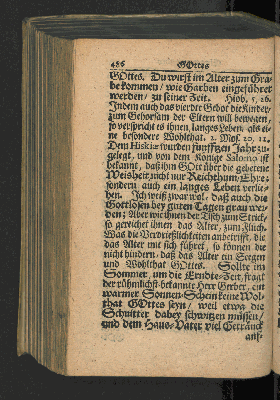 486 GOttes
GOttes. Du wirst im Alter zum Gra-
be kommen/ wie Garben eingeführet
werden/ zu seiner Zeit. Hiob. 5, 26.
Indem auch das vierdte Gebot die Kinder
zum Gehorsam der Eltern will bewegen,
so verspricht es ihnen, langes Leben, als ei-
ne besondere Wohlthat. 2. Mos. 20, 12.
Dem Hiskiæ wurden funfftzen Jahr zu-
gelegt, und von dem Könige Salomo ist
bekannt, daß ihm GOtt über die gebetene
Weisheit nicht nur Reichthum, Ehre,
sondern auch ein langes Leben verlie-
hen. Ich weiß zwar wol, daß auch die
Gottlosen bey guten Tagen grau wer-
den; Aber wie ihnen der Tisch zum Strick,
so gereichet ihnen das Alter, zum Fluch.
Was die Verdrießlichkeiten anbetrifft, die
das Alter mit sich führet, so können die
nicht hindern, daß das Alter ein Seegen
und Wohlthat GOttes. Sollte im
Sommer, um die Erndte-Zeit, fragt
der rühmlichst-bekannte Herr Gerber, ein
warmer Sonnen-Schein keine Wol-
that GOttes seyn/ weil etwa die
Schnitter dabey schwitzen müssen/
und dem Haus-Vater viel Getränck
auf-